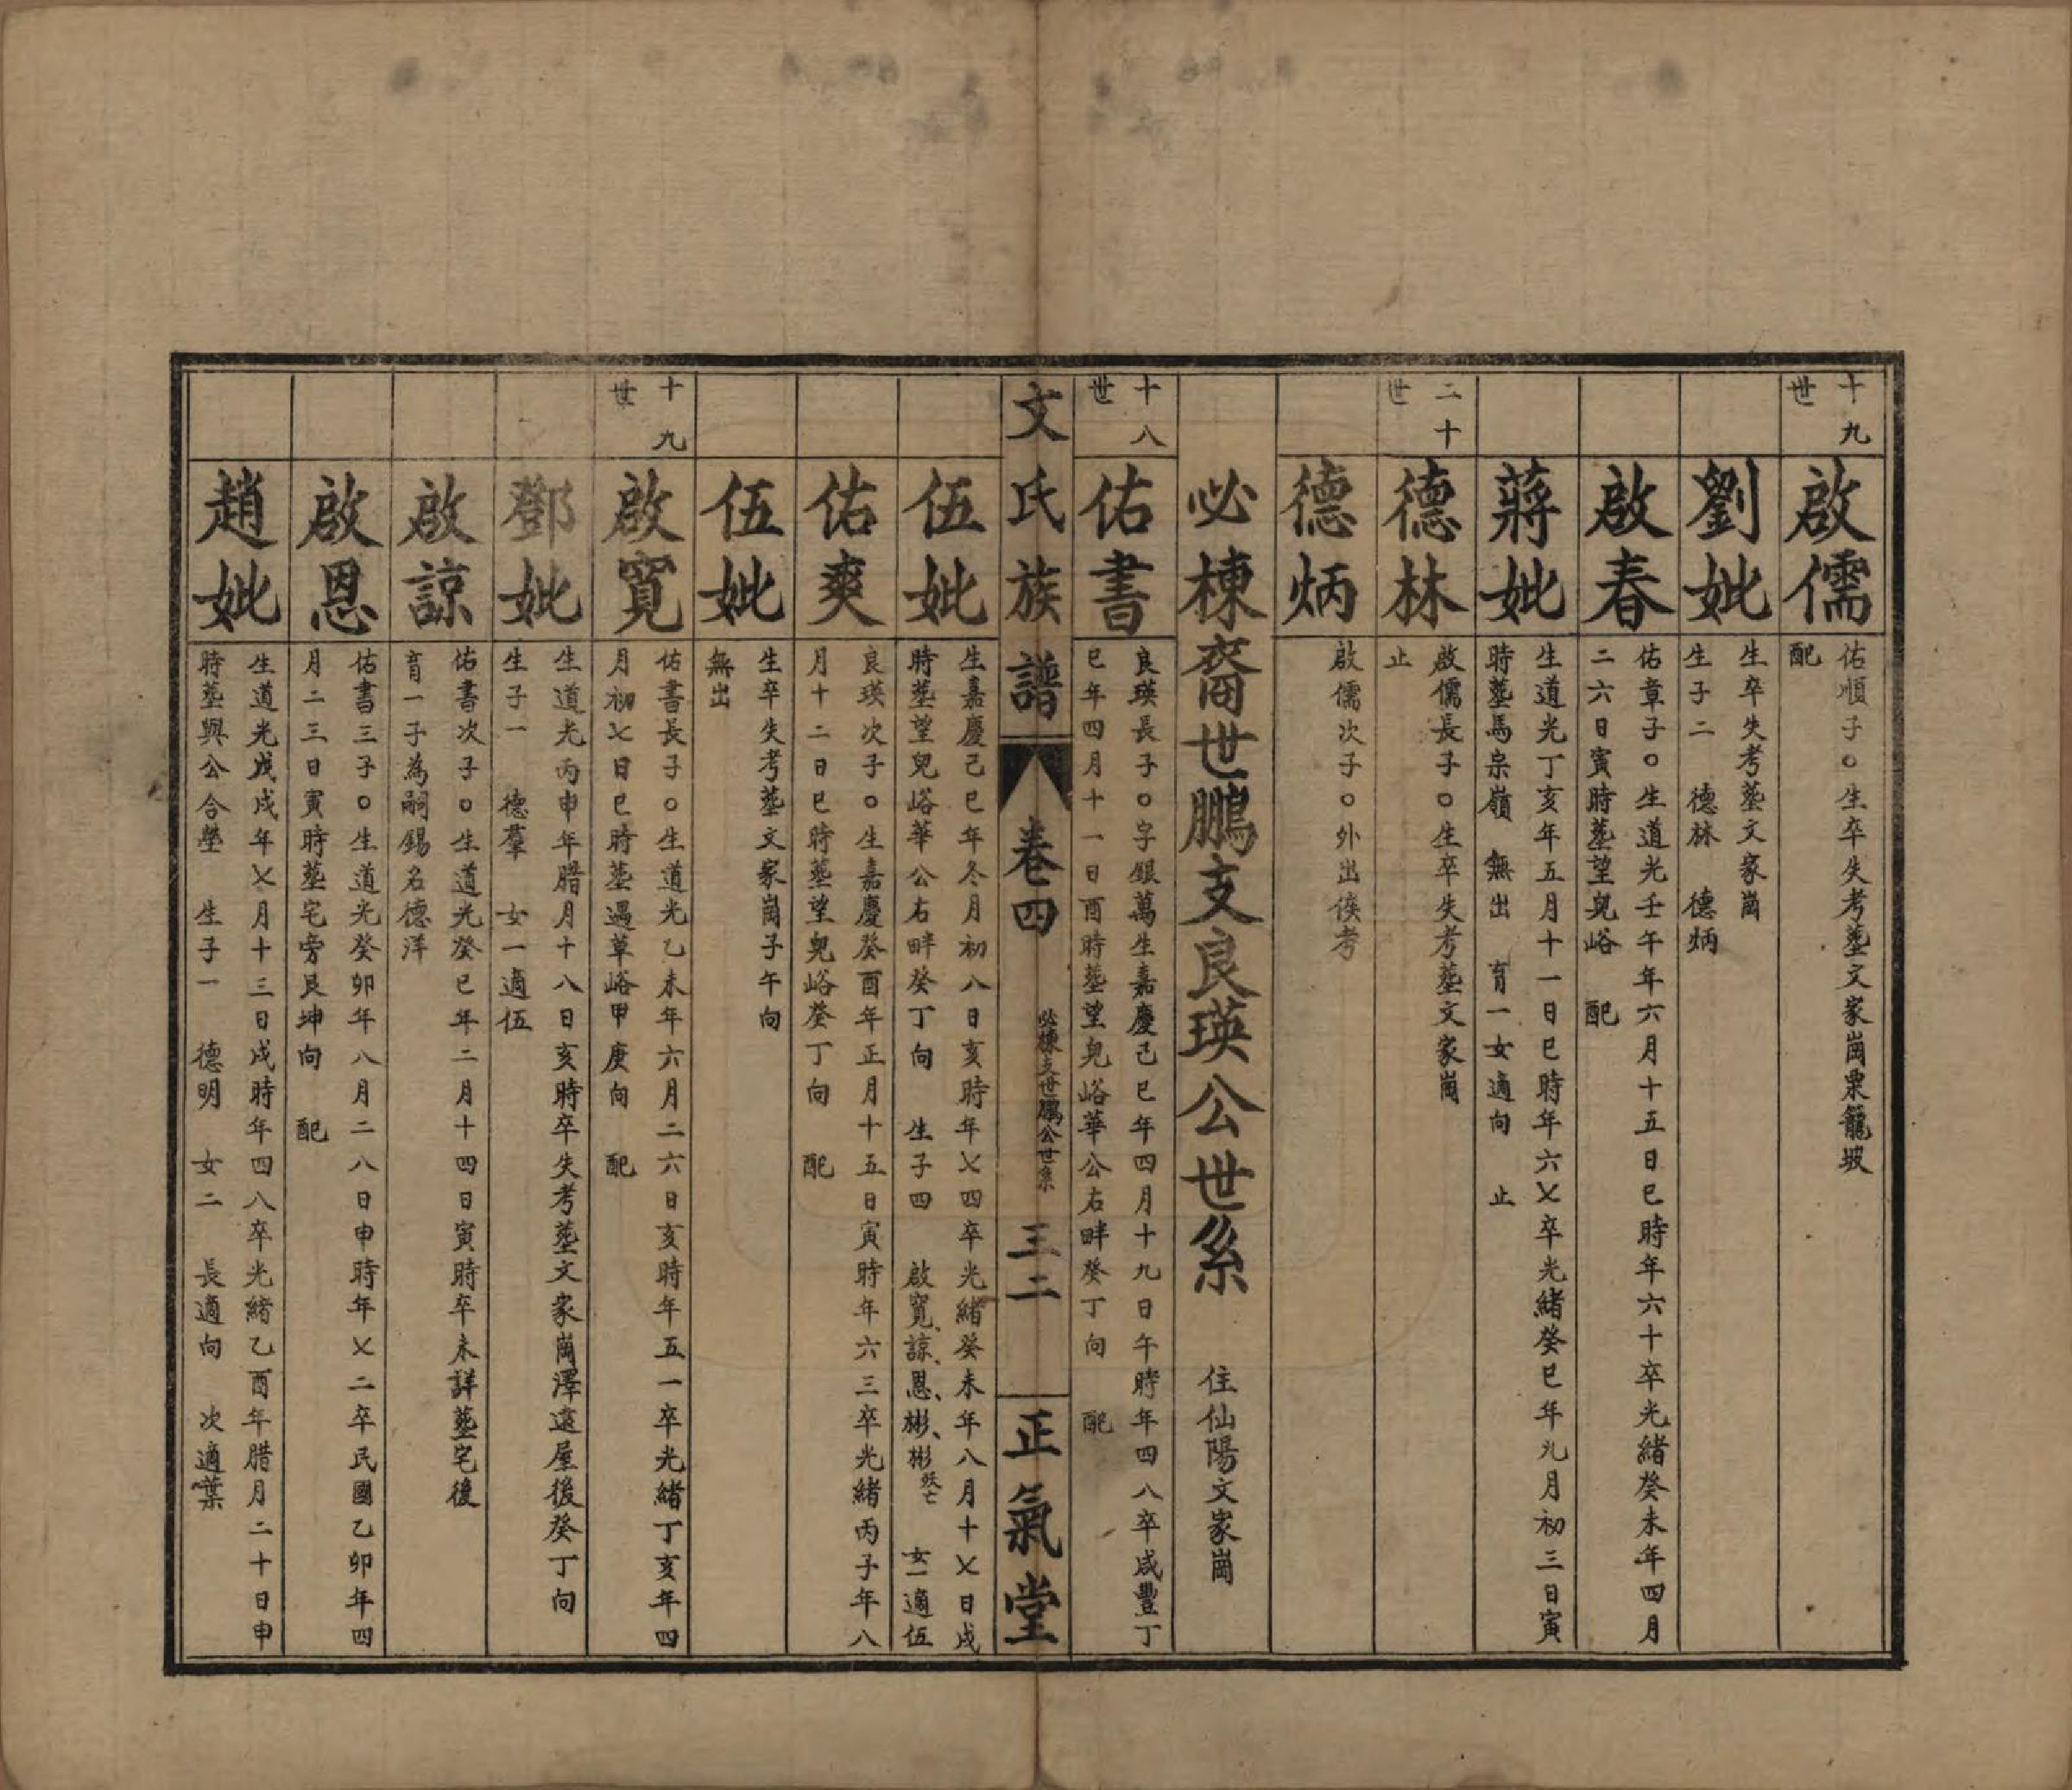 十九世
啟儒
佑順子○生卒失考塟文家崗栗籠坡
配
劉妣
生卒失考塟文家崗
生子二　德林　德炳
啟春
佑章子○生道光壬午年六月十五日巳時年六十卒光緒癸未年四月
二六日寅時塟望兒峪　配
蔣妣
生道光丁亥年五月十一日巳時年六乂卒光緒癸巳年九月初三日寅
時塟馬杗嶺　無出　育一女適向　止
二十世
德林
啟儒長子○生卒失考塟文家崗
止
德炳
啟儒次子○外出俟考
必棟裔世鵬支良瑛公世系　住仙陽文家崗
十八世
佑書
良瑛長子○字銀萬生嘉慶己巳年四月十九日午時年四八卒咸豐丁
巳年四月十一日酉時塟望兒峪華公右畔癸丁向　配
文氏族譜　卷四　必棟支世鵬公世系　三二　正氣堂
伍妣
生嘉慶己巳年冬月初八日亥時年乂四卒光緒癸未年八月十乂日戌
時塟望兒峪華公右畔癸丁向　生子四　啟寬、諒、恩、彬、彬殀亡　女一適伍
佑爽
良瑛次子○生嘉慶癸酉年正月十五日寅時年六三卒光緒丙子年八
月十二日巳時塟望兒峪癸丁向　配
伍妣
生卒失考塟文家崗子午向
無出
十九世
啟寬
佑書長子○生道光乙未年六月二六日亥時年五一卒光緒丁亥年四
月初乂日巳時塟遇草峪甲庚向　配
鄧妣
生道光丙申年腊月十八日亥時卒失考塟文家崗澤遠屋後癸丁向
生子一　德羣　女一適伍
啟諒
佑書次子○生道光癸巳年二月十四日寅時卒未詳塟宅後
育一子為嗣錫名德洋
啟恩
佑書三子○生道光癸卯年八月二八日申時年乂二卒民國乙卯年四
月二三日寅時塟宅旁艮坤向　配
趙妣
生道光戊戌年乂月十三日戌時年四八卒光緒乙酉年腊月二十日申
時塟與公合塋　生子一　德明　女二　長適向　次適葉